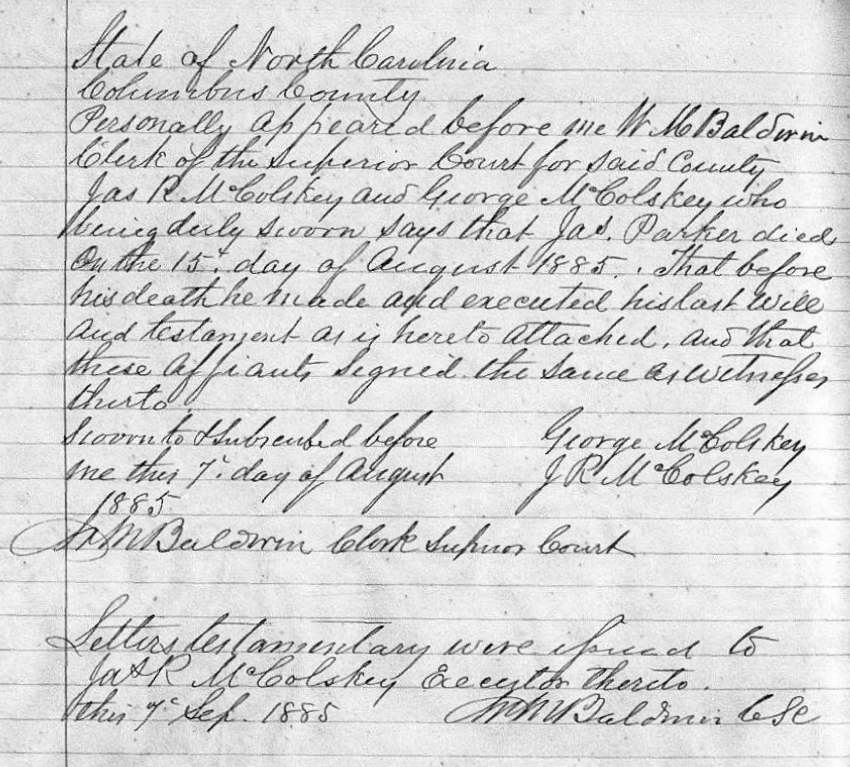 State of North Carolina
Columbus County
Personally appeared before me W M Baldwin
Clerk of the Superior Court for said County
Jas R. McColskey and George McColskey who
being duly sworn says that Jas. Parker died
on the 15t. day of August 1885. That before
his death he made and executed his last will
and testament as is hereto attached, and that
these affiants signed the same as witnesses
therto
Sworn to & subscribed before George McColskey
me this 7t. day of August J R McColskey
1885
W M Baldwin Clerk Superior Court
Letters testamentary were issued to
Jas R McColskey Executor thereto.
this 7t Sep. 1885 W M Baldwin CSC